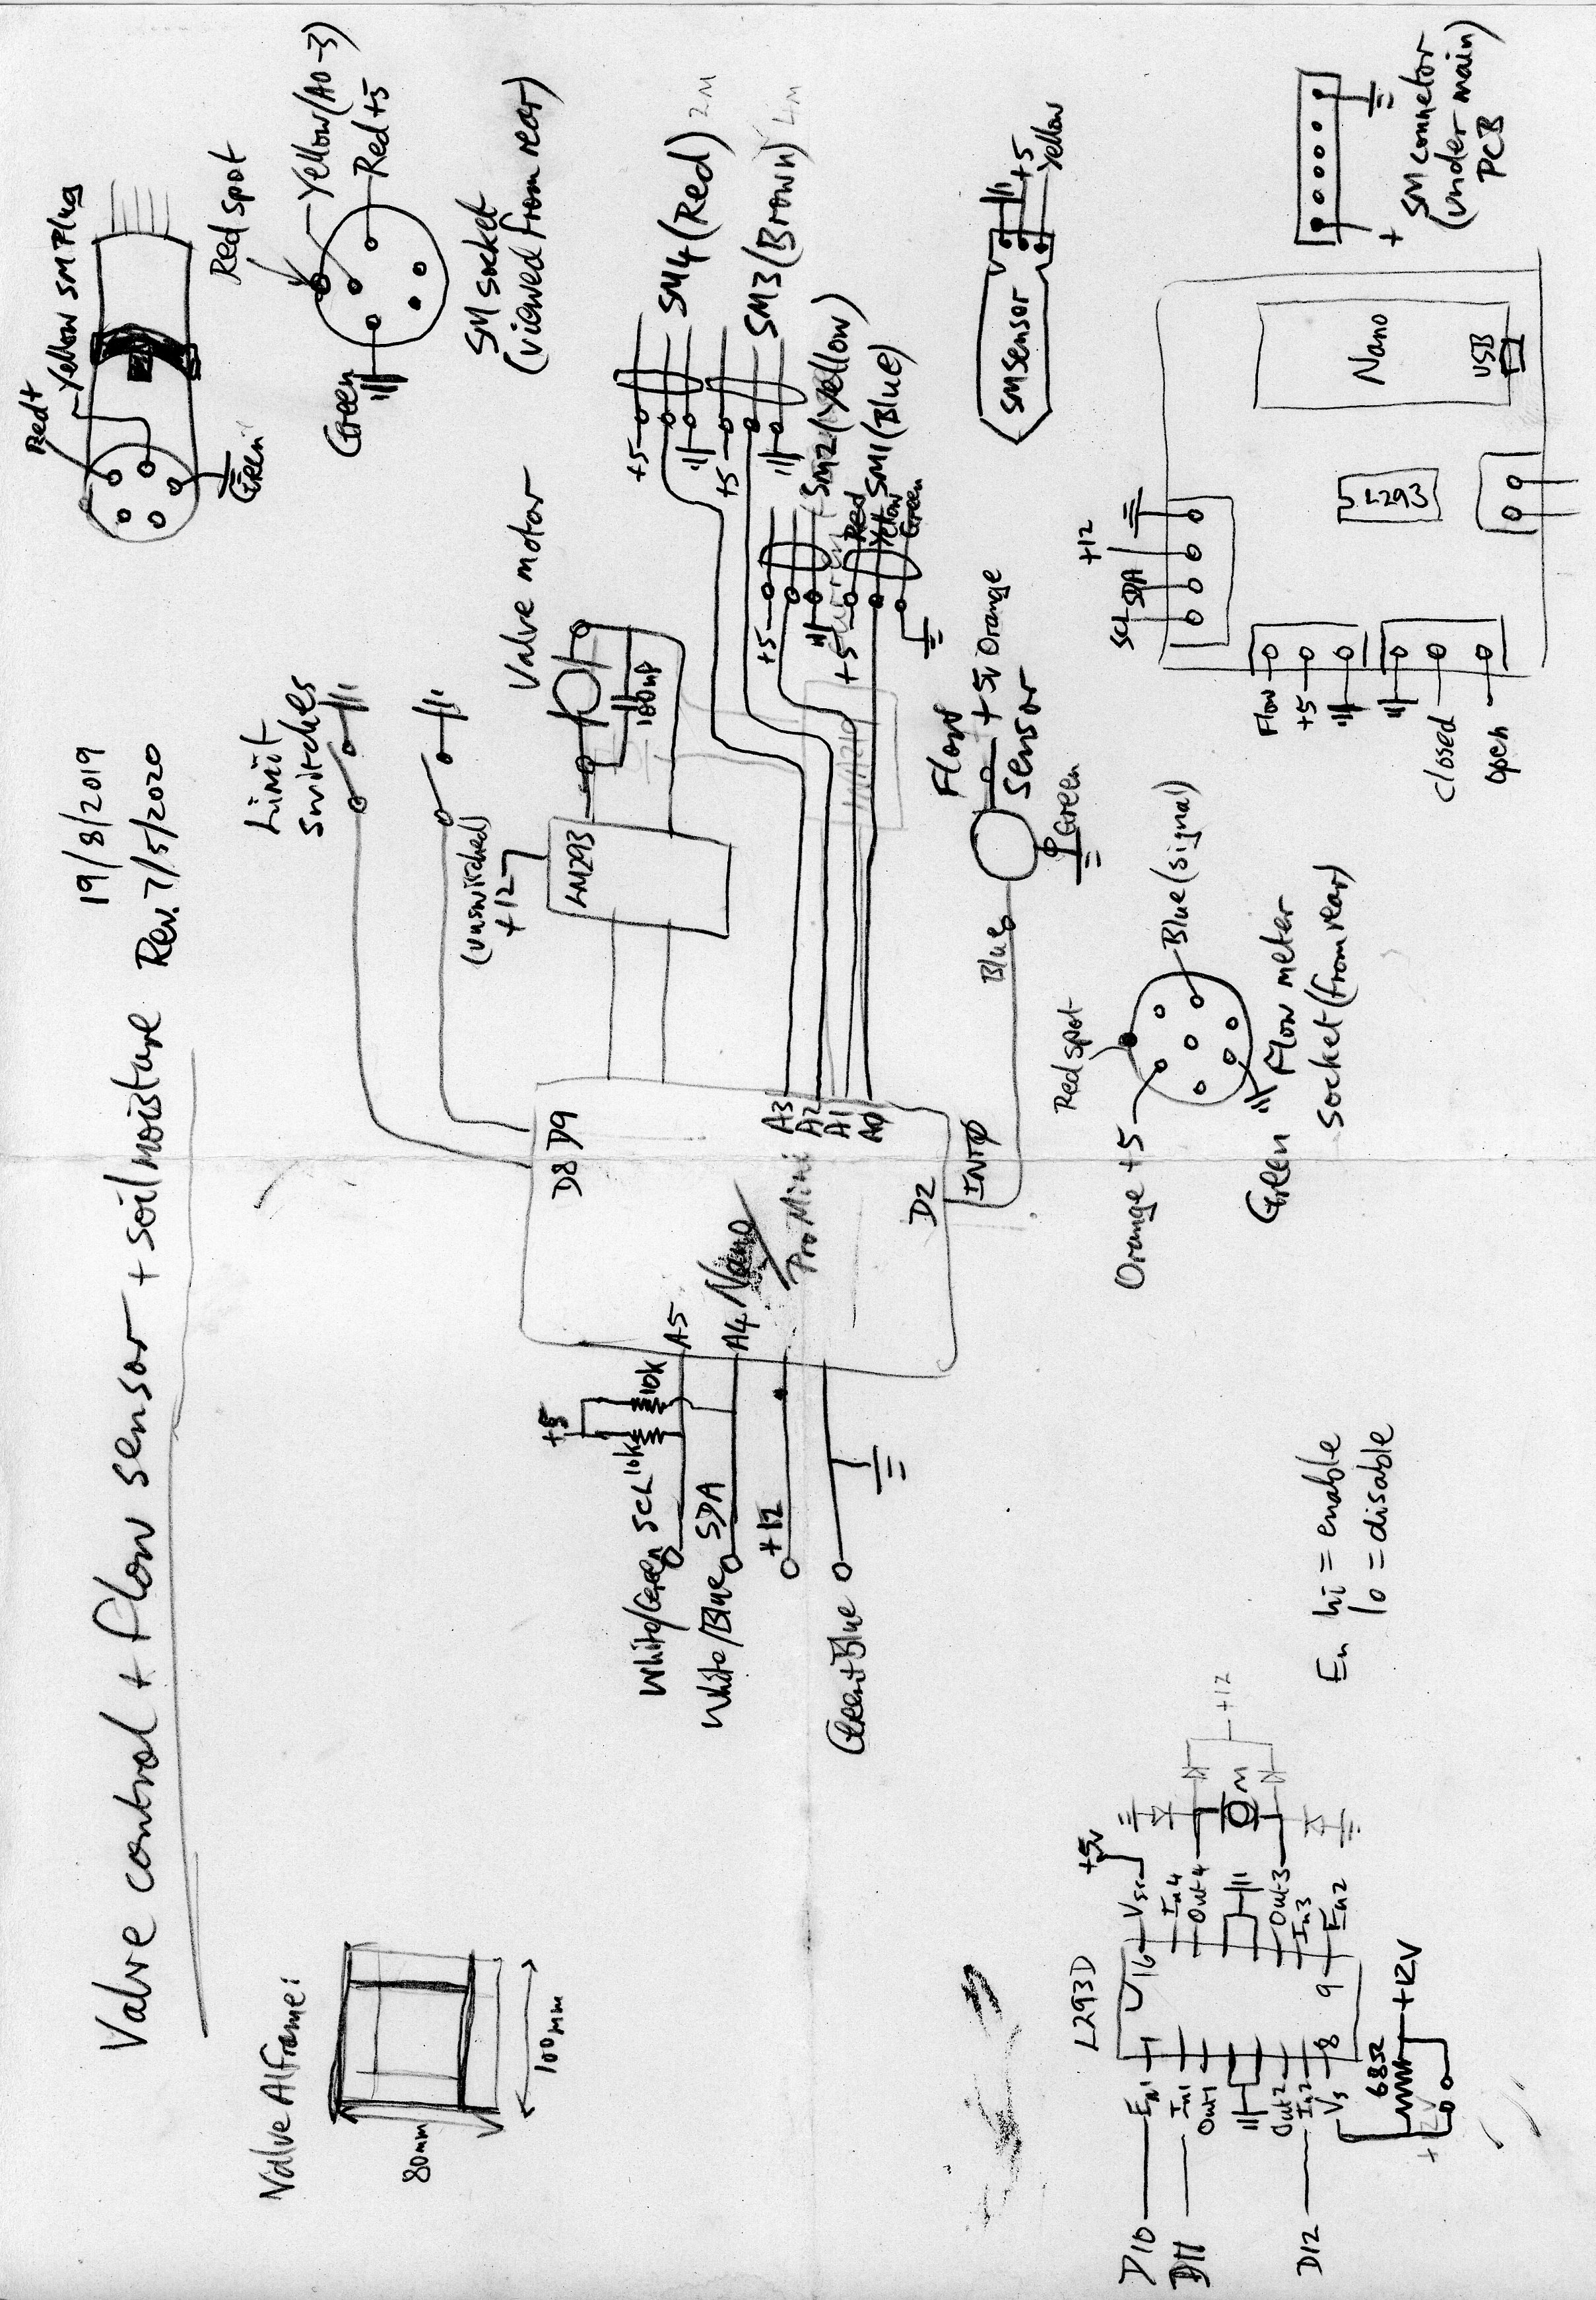 Valve control + flow sensor + soil moisture
19/8/2019
Rev. 7/5/2020
Valve Al frame:
80mm
100mm
Limit
switches
Red+
Yellow SM Plug
Green
Red spot
Yellow (A0-3)
Red +5
Green
SM socket
(viewed from rear)
(unswitched)
+12
LM293
Valve motor
100nF
D8 D9
+5
10k
10k
White/Green SCL
A5
White/Blue SDA
A4
+12
Green+Blue
Nano/
Pro Mini
A3
A2
A1
A0
D2
INT0
+5
SM4 (Red) 2M
+5
SM3 (Brown) 4M
+5
SM2 (Yellow)
+5
Red
Yellow
Green
SM1 (Blue)
Blue
Flow
sensor
+5v Orange
Green
SM Sensor
+5
Yellow
Red spot
Orange +5
Blue (signal)
Green
Flow meter
socket (from rear)
SCL
SDA
+12
Flow
+5
closed
open
L293
Nano
USB
+
SM connetor
(under main
PCB
L293D
D10
En1
D11
In1
Out1
Out2
D12
In2
Vs
1
8
16
9
+5v
Vss
In4
Out4
Out3
In3
En2
M
+12
68Ω
+12V
+12V
En hi = enable
lo = disable